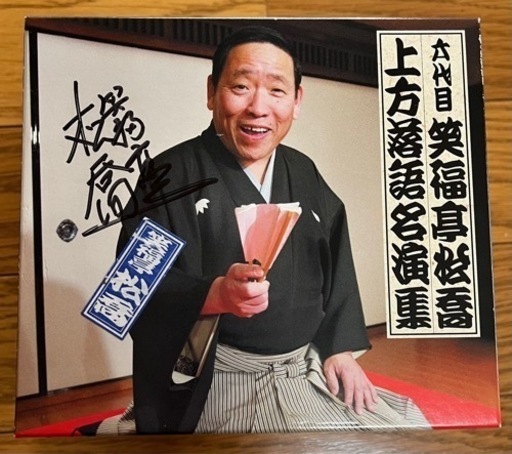 六代目 笑福亭松喬
上方落語名演集
笑福亭 松喬